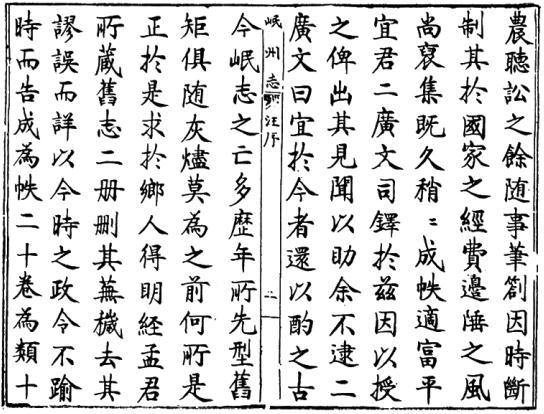 農聽訟之餘随事筆劄因時斷
制其於國家之經費邊陲之風
尚裒集既久稍〻成帙適富平
宜君二廣文司鐸於兹因以授
之俾出其見聞以助余不逮二
廣文曰宜於今者還以酌之古
岷州志 汪序 二
今岷志之亡多歷年所先型舊
矩俱随灰燼莫為之前何所是
正於是求於鄉人得明經孟君
所藏舊志二册删其蕪穢去其
謬誤而詳以今時之政令不踰
時而告成為帙二十卷為類十